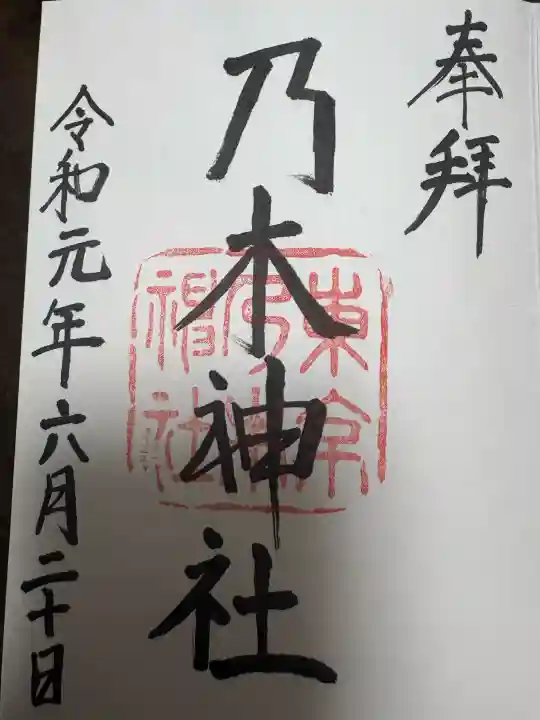 奉拝
乃木神社
東京
乃木
神社
令和元年六月二十日